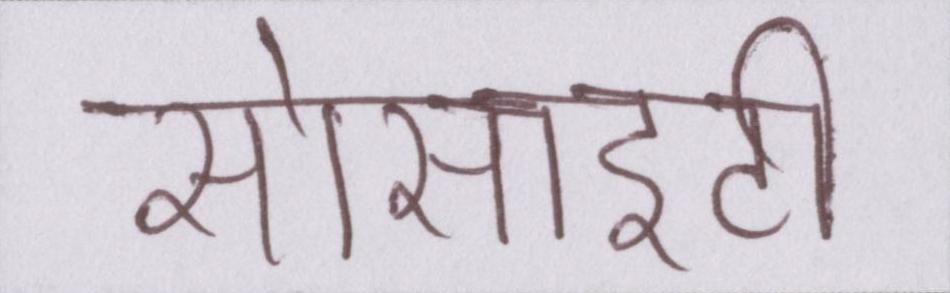 सोसाइटी